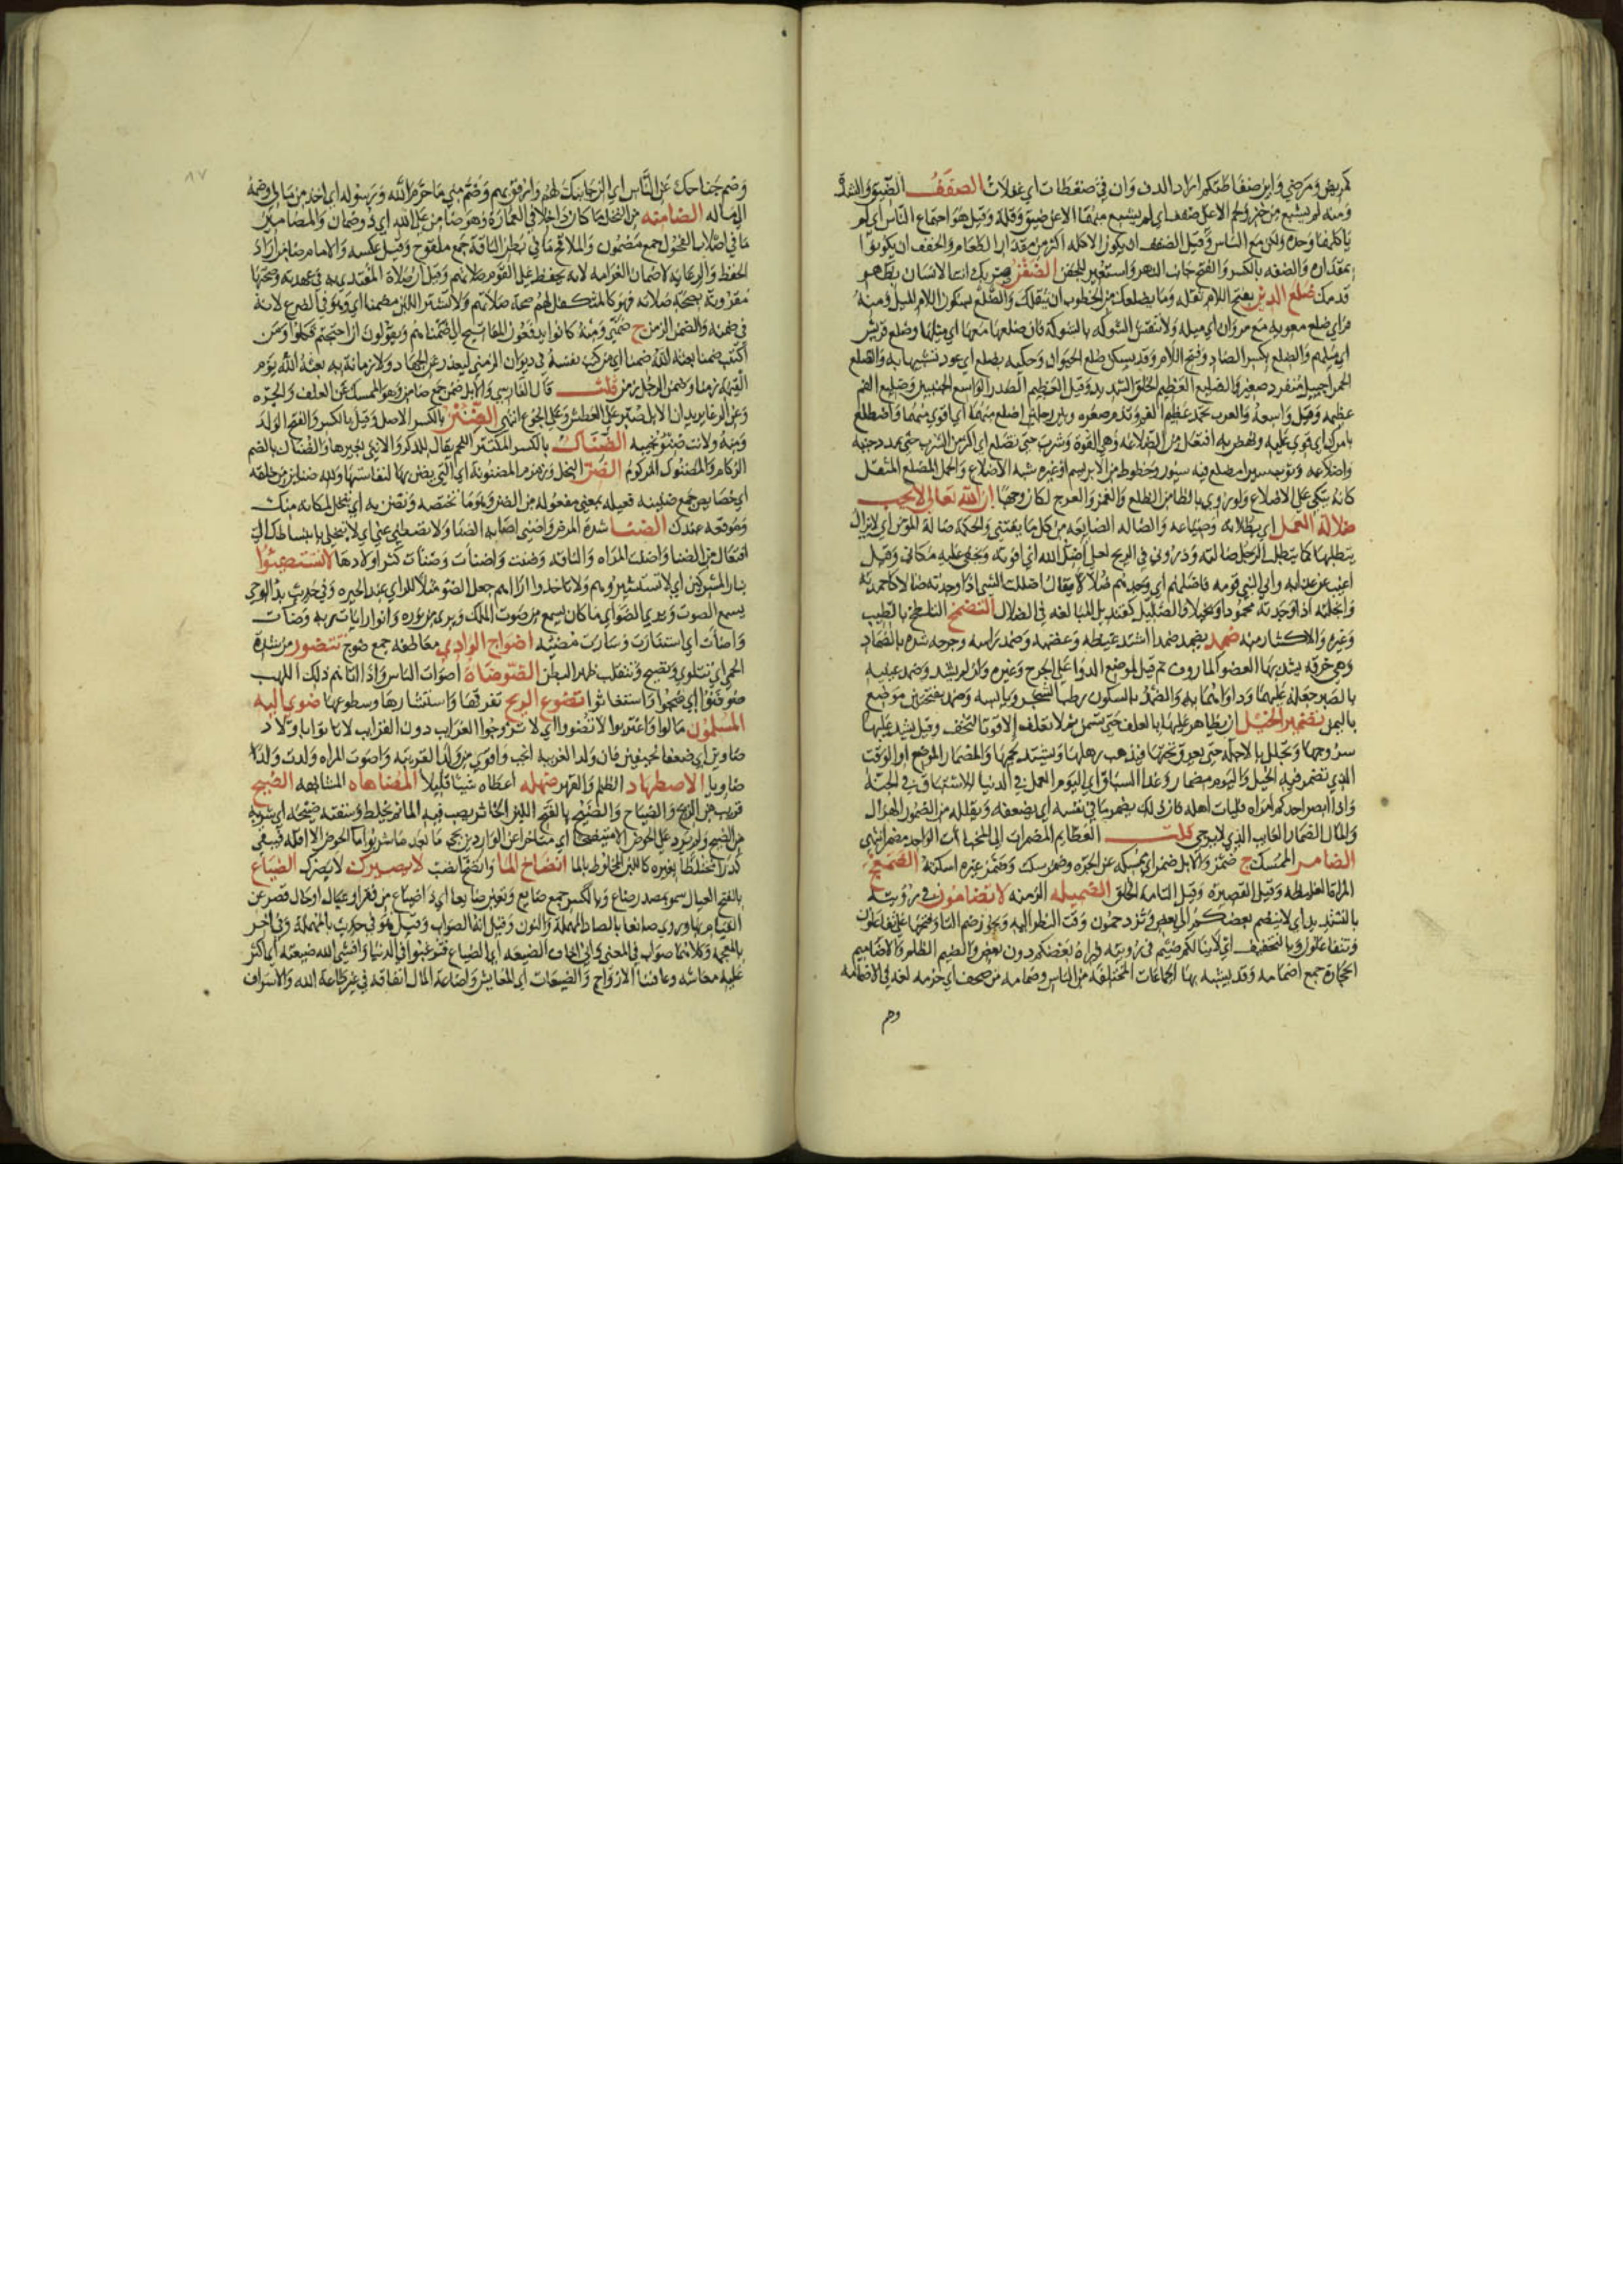 كمريض ومرضى وابن ضفاطتكم اراد الدف وان في ضفطات اي غفلات الضفف الضيق والشدة
ومنه لم يشبع من خبز ولحم الا على ضفف اي لم يشبع منهما الا عن ضيق وقلة وقيل هو اجتماع الناس اي لم
ياكلهما وحده ولكن مع الناس وقيل الضفف ان يكون الاكلة اكثر من مقدار الطعام والحفف ان يكونوا
بمقداره والضفه بالكسر والفتح جانب النهر واستعير للجفن الضفز
قدمك ضلع الدين بفتح اللام ثقله وما يضلعك من الخطوب اي يثقلك والضلع بسكون اللام الميل ومنه
فراى ضلع معوية مع مروان اي ميله ولا تنقش الشوكة بالشوكة فان ضلعها معها اي ميلها وضلع قريش
اي ميلهم والضلع بكسر الضاد وفتح اللام وقد يسكن ضلع الحيوان وحكيه بضلع اي عود تشبيها به والضلع
الحمرا جبيل منفرد صغير والضليع العظيم الخلق الشديد وقيل العظيم الصدر الواسع الجنبين وضليع الفم
عظيمه وقيل واسعه والعرب تحمد عظم الفم وتذم صغره وبين رجلين اضلع منهما اي اقوى منهما واضطلع
بامرك اي قوي عليه ونهض به افتعل من الضلاعة وهي القوة وشرب حتى تضلع اي اكثر من الشرب حتى تمدد جنبه
واضلاعه وثوب سيرا مضلع فيه سيور وخطوط من الابريسم او غيره شبه الاضلاع والحمل المضلع المثقل
كانه يتكي على الاضلاع ولو روي بالظا من الظلع والغمز والعرج لكان وجها ان الله تعالى لا يحب
ضلالة العمل اي بطلانه وضياعه والضالة الضايعة من كل ما يقتنى والحكمة ضالة المؤمن اي لا يزال
يتطلبها كما يتطلب الرجل ضالته وذروني في الريح لعلي اضل الله اي افوته ويخفى عليه مكاني وقيل
اغيب عن عذابه واتى النبي قومه فاضلهم اي وجدهم ضلالا يقال اضللت الشي اذا وجدته ضالا كاحمدته
وابخلته اذا وجدته محمودا وبخيلا والضليل كقنديل المبالغة في الضلال التضمخ التلطخ بالطيب
وغيره والاكثار منه ضمد يضمد ضمدا اشتد غيظه وغضبه وضمد راسه وجرحه شده بالضماد
وهي خرقة يشد بها العضو الماووف ثم قيل لوضع الدوا على الجرح وغيره وان لم يشد وضمد عينيه
بالصبر جعله عليهما وداواهما به والضمد بالسكون رطب الشجر ويابسه وضمد بفتحتين موضع
باليمن تضمير الخيل ان يظاهر عليها بالعلف حتى تسمن ثم لا تعلف الا قوتا لتخف وقيل يشد عليها
سروجها وتجلل بالاجلة حتى يعرق تحتها فيذهب رهلها ويشتد لحمها والمضمار الموضع او الوقت
الذي تضمر فيه الخيل واليوم مضمار وغدا السباق اي اليوم العمل في الدنيا للاستباق في الجنة
واذا ابصر احدكم امراة فليات اهله فان ذلك يضمر ما في نفسه اي يضعفه ويقلله من الضمور الهزال
والمال الضمار الغايب الذي لا يرجى قلت العظايم المضمرات اي المخبآت الواحد مضمر انتهى
الضامز الممسك ج ضمز والابل ضمز اي ممسكة عن الجرة وضمز سكت وضمز غيره اسكته الضمعج
المراة الغليظة وقيل القصيرة وقيل التامة الخلق الضميلة الزمنة لا تضامون في رؤيته
بالتشديد اي لا ينضم بعضكم الى بعض وتزدحمون وقت النظر اليه ويجوز ضم التا وفتحها على تفاعلون
وتتفاعلون وبالتخفيف اي لا ينالكم ضيم في رؤيته فيراه بعضكم دون بعض والضيم الظلم والاضاميم
الحجارة جمع اضمامة وقد يشبه بها الجماعات المختلفة من الناس وضمامة من صحف اي حزمة لغة في الاضمامة
وهم
٨٧
وضم جناحك عن الناس اي الن جانبك لهم وارفق بهم وضم مني ما حرم الله ورسوله اي اخذ من مالي وضمه
الى ماله الضامنة من النخل ما كان داخلا في العمارة وهو ضامن على الله اي ذو ضمان والمضامين
ما في اصلاب الفحول جمع مضمون والملاقيح ما في بطن الناقة جمع ملقوح وقيل عكسه والامام ضامن اراد
الحفظ والرعاية لا ضمان الغرامة لانه يحفظ على القوم صلاتهم وقيل ان صلاة المقتدي به في عهدته وصحتها
مقرونة بصحة صلاته فهو كالمتكفل لهم صحة صلاتهم ولا تشتر اللبن مضمنا اي وهو في الضرع لانه
في ضمنه والضمن الزمن ج ضمنى ومنه كانوا يدفعون المفاتيح الى ضمناهم ويقولون ان احتجتم فكلوا ومن
اكتتب ضمنا بعثه الله ضمنا اي من كتب نفسه في ديوان الزمنى ليعذر عن الجهاد ولا زمانة به بعثه الله يوم
القيمة زمنا وضمن الرجل زمن قلت قال الفارسي والابل ضمن جمع ضامن وهو الممسك عن العلف والجرة
وعن الرغا يريد ان الابل صبر على العطش وعلى الجوع انتهى الضنئ بالكسر الاصل وقيل بالكسر والفتح الولد
ومنه ولانت ضنئو نجيبة الضناك بالكسر المكتنز اللحم يقال للذكر والانثى بغير ها والضناك بالضم
الزكام والمضنوك المزكوم الضن البخل وزمزم المضنونة اي التي يضن بها لنفاستها ولله ضناين من خلقه
اي خصايص جمع ضنينة فعيلة بمعنى مفعولة من الضن وهو ما تختصه وتضن به اي تبخل لمكانه منك
وموقعه عندك الضنا شدة المرض واضنى اصابه الضنا ولا تضطني عني اي لا تبخلي بانبساطك الي
افتعال من الضنا واضنت المراة والناقة وضنت واضنات وضنات كثر اولادها لا تستضيئوا
بنار المشركين اي لا تستشيروهم ولا تاخذوا اراهم جعل الضو مثلا للراي عند الحيرة وفي حديث بدء الوحي
يسمع الصوت ويرى الضوء اي ما كان يسمع من صوت الملك ويرى من نوره وانوار ايات ربه وضاءت
واضاءت اي استنارت وسارت مضيئة اضواج الوادي معاطفه جمع ضوج تتضور من شدة
الحمى اي تتلوى وتضج وتتقلب ظهر البطن الضوضاة اصوات الناس واذا اتاهم ذلك اللهب
ضوضوا اي ضجوا واستغاثوا تضوع الريح تفرقها وانتشارها وسطوعها ضوى اليه
المسلمون مالوا واغتربوا لا تضووا اي لا تزوجوا الغرايب دون القرايب لانا تواباولاد
ضاوين اي ضعفا نحيفين فان ولد الغريبة انجب واقوى من ولد القريبة واضوت المراة ولدت ولدا
ضاويا الاضطهاد الظلم والقهر ضهله اعطاه شيئا قليلا المضاهاه المشابهة الضيح
قريب من الريح والضياح والضيح بالفتح اللبن الخاثر يصب فيه الما ثم يخلط وسقته ضيحة اي شربة
من الضيح ولم يرد علي الحوض الا متضيحا اي متاخرا عن الواردين يجي ما بعد ما شربوا ما الحوض الا اقله فيبقى
كدرا مختلطا بغيره كاللبن المخلوط بالما انضاخ الما وانضخ انصب لا يضيرك لا يضرك الضياع
بالفتح العيال سمو بمصدر ضاع وبالكسر جمع ضايع وتعين ضايعا اي ذا ضياع من فقر او عيال او حال قصر عن
القيام بها وروي صانعا بالصاد المهملة والنون وقيل انه الصواب وقيل هو في حديث بالمهملة وفي اخر
بالمعجمة وكلاهما صواب في المعنى واني اخاف الضيعة اي الضياع فترغبوا في الدنيا وافشى الله ضيعته اي اكثر
عليه معاشه وعافسنا الازواج والضيعات اي المعايش واضاعة المال انفاقه في غير طاعة الله والاسراف